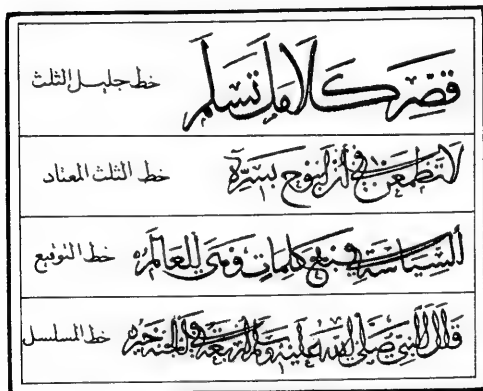 قصر كلامك تسلم خط جليل الثلث
لا تطمعن في أن تبوح بسره خط الثلث المعتاد
السياسة في كلمات وهي للعالم خط التوقيع
قال النبي صلى الله عليه وسلم في الجنة خيره خط المسلسل